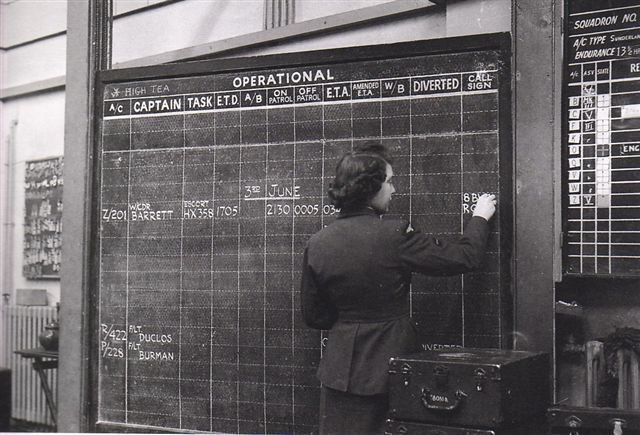 OPERATIONAL
HIGH TEA
A/C CAPTAIN TASK E.T.D. A/B ON PATROL OFF PATROL E.T.A. AMENDED E.T.A. W/B DIVERTED CALL SIGN
3RD JUNE
Z/201 W/CDR BARRETT ESCORT HX358 1705 2130 0005
R/422 F/LT DUCLOS
P/228 F/LT BURMAN
SQUADRON NO.
A/C TYPE SUNDERLAN
ENDURANCE 13½ H
A/C ASV STATE RE
ENG